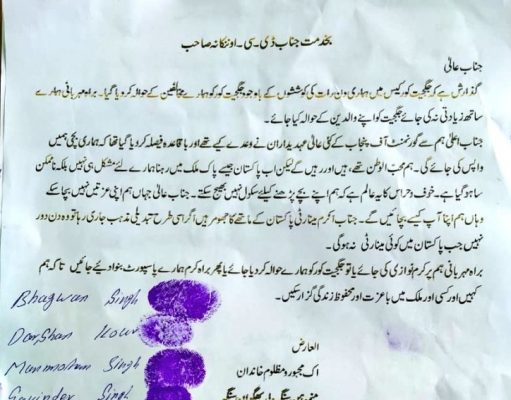 بخدمت جناب ڈی۔سی۔او ننکانہ صاحب
جناب عالی
گذارش ہے کہ جگجیت کور کیس میں ہماری دن رات کی کوششوں کے باوجود جگجیت کور کو ہمارے مخالفین کے حوالہ کر دیا گیا۔ براہ مہربانی ہمارے
ساتھ زیادتی نہ کی جائے جگجیت کو اپنے والدین کے حوالہ کیا جائے۔
جناب اعلیٰ ہم سے گورنمنٹ آف پنجاب کے کئی عالی عہدیداران نے وعدے کیے تھے اور باقاعدہ فیصلہ کر دیا گیا تھا کہ ہماری بچی ہمیں
واپس کی جائے گی۔ ہم محب الوطن تھے، ہیں اور رہیں گے لیکن اب پاکستان جیسے پاک ملک میں رہنا ہمارے لئے مشکل ہی نہیں بلکہ ناممکن
سا ہو گیا ہے۔ خوف و حراس کا یہ عالم ہے کہ ہم اپنے بچے پڑھنے کیلئے سکول نہیں بھیج سکتے۔ جناب عالی جہاں ہم اپنی عزتیں نہیں بچا سکے
وہاں ہم اپنا آپ کیسے بچائیں گے۔ جناب اکرم مینارٹی پاکستان کے ماتھے کا جھومر ہیں اگر اسی طرح تبدیلی مذہب جاری رہا تو وہ دن دور
نہیں جب پاکستان میں کوئی مینارٹی نہ ہوگی۔
براہ مہربانی ہم پر کرم نوازی کی جائے یا تو جگجیت کور کو ہمارے حوالہ کر دیا جائے یا پھر براہ کرم ہمارے پاسپورٹ بنوا دیئے جائیں تاکہ ہم
کہیں اور کسی اور ملک میں باعزت اور محفوظ زندگی گزار سکیں۔
Bhagwan Singh
Darshan Kour
العارض
Manmohan Singh
اک مجبور و مظلوم خاندان
Govinder Singh